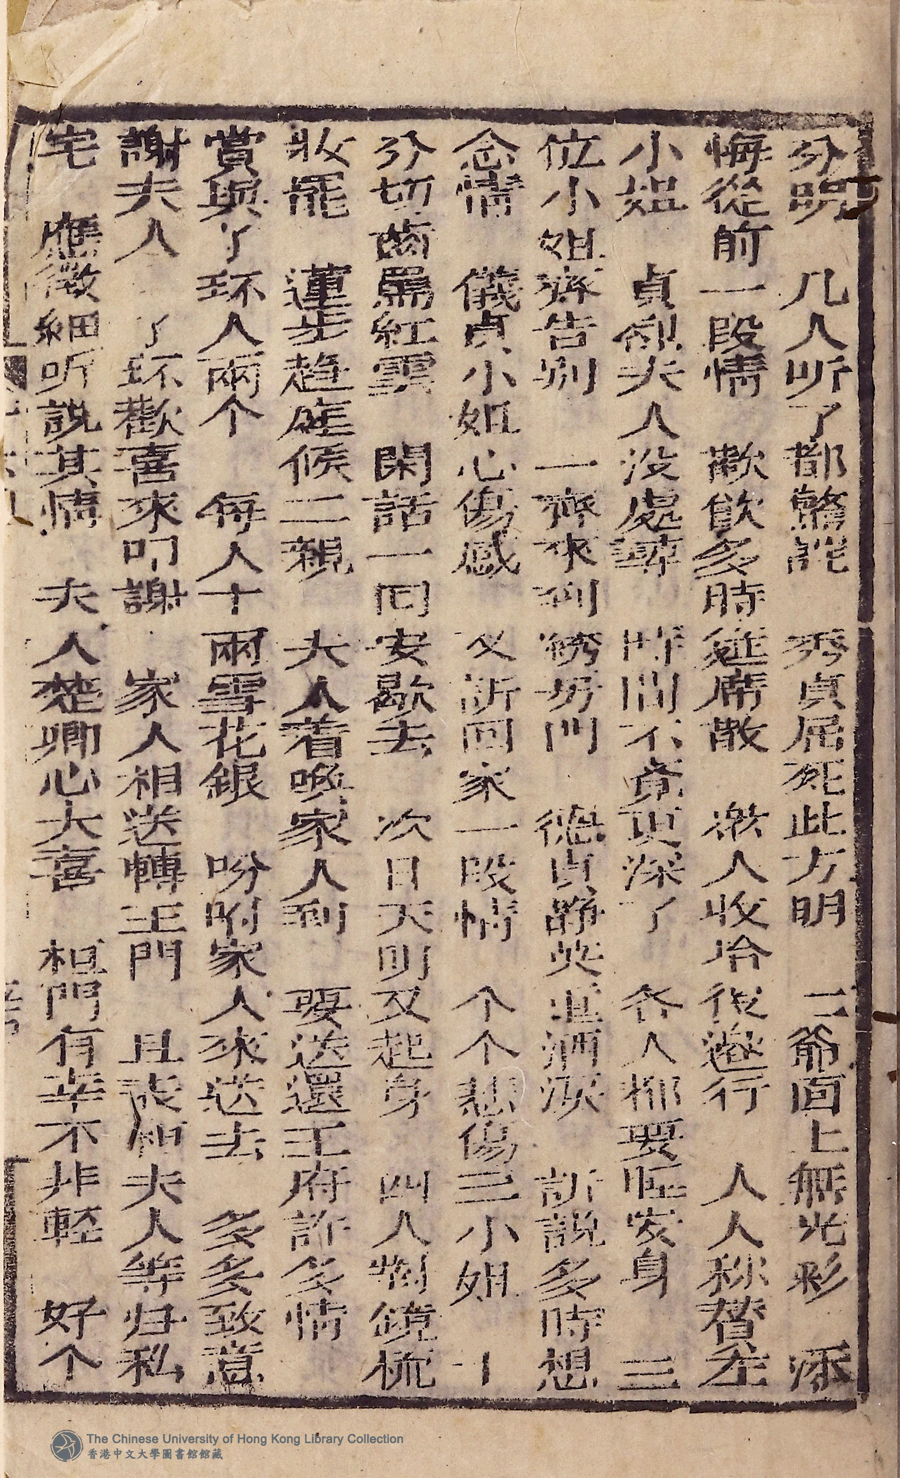 分明 几人听了都驚詫 秀貞屈死此方明 二爺面上無光彩 添
悔從前一段情 歡飲多時筵席散 衆人收拾後邊行 人人称賛左
小姐 貞烈夫人没處尋 時間不竟更深了 各人都要旺安身 三
位小姐齊告别 一齊來到綉房門 德貞静英重洒淚 訴説多時想
念情 儀貞小姐心傷感 又訴回家一段情 个个悲傷三小姐 十
分切齒罵紅雲 閑話一回安歇去 次日天明又起身 四人對鏡梳
妝罷 蓮步趋庭候二親 夫人着喚家人到 要送還王府許多情
賞與了环人兩个 每人十兩雪花銀 吩咐家人來送去 多多致意
謝夫人 了环歡喜來叩謝 家人相送轉王門 且表相夫人等归私
宅 應徵細听説其情 夫人楚卿心大喜 相門有幸不非輕 好个
The Chinese University of Hong Kong Library Collection
香港中文大學圖書館館藏